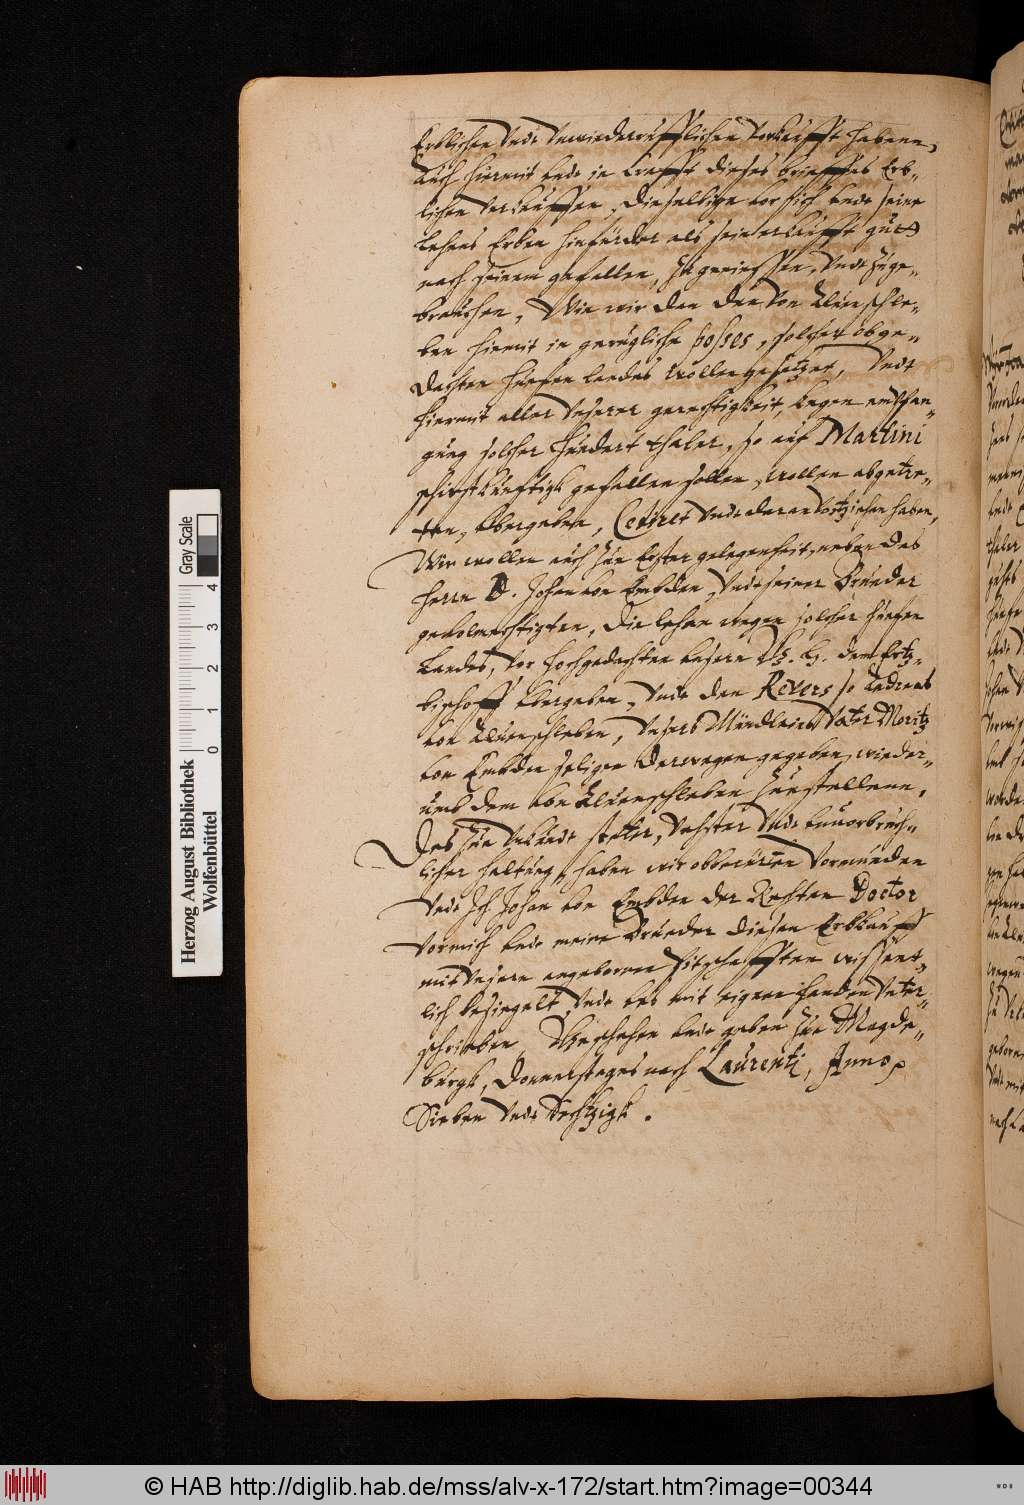 Erblichen Vndt Vnwiederrufflichen Verkaufft habenn,
Auch hiermit vnd in krafft dieses brieffes Erb-
lichen verkauffen, dieselbige vor sich vnd seine
Lehens Erben hinfürder als sein erkaufft gut
nach seinem gefallen, zu geniessen, Vndt zuge-
brauchen, Wie wir den den Von Aluenschle-
ben hiemit in gerugliche posses, solcher obge-
dachten hueffen landes wollen gesetzet, Vndt
hiermit aller Vnserer gerechtigkeit, kegen empfan-
gung solcher hundert thaler, so auf Martini
schirstkunftigk gefallen sollen, wollen abgetre-
ten, Vbergeben, Cediret Vnd deren Vortziehen haben,
Wir wollen auch zur Erster gelegenheit, neben des
herrn D. Johan von Embden, Vnd seiner Brueder
geuolmechtigten, die lehen wegen solcher huefen
Landes, Vor hochgedachten vnsern g. h. dem Ertz-
bischoff Vbergeben, Vnd den Revers so Andreas
von Aluenschleben, Vnsers Mündleins Vater Moritz
von Embden seligen derwegen gegeben, wieder-
umb dem von Aluenschleben zuestellenn,
Des zur Vrkundt steter, Vehster Vnd vnuorbruch-
licher haltung, haben wir obberürten Vormunden
Vnd Ich Johan von Embden der Rechten Doctor
Vor mich vnd meine Brueder diesen Erbkauff
mit Vnsern angebornen Pitzschafften wissent-
lich besiegelt, Vnd vns mit eignen handen Vnter-
schrieben, Geschehen vnd geben zue Magde-
burgk, Donnerstages nach Laurentj, Anno
Sieben Vnd Sechtzigk.
Herzog August Bibliothek
Wolfenbüttel
Gray Scale
0 1 2 3 4
© HAB http://diglib.hab.de/mss/alv-x-172/start.htm?image=00344